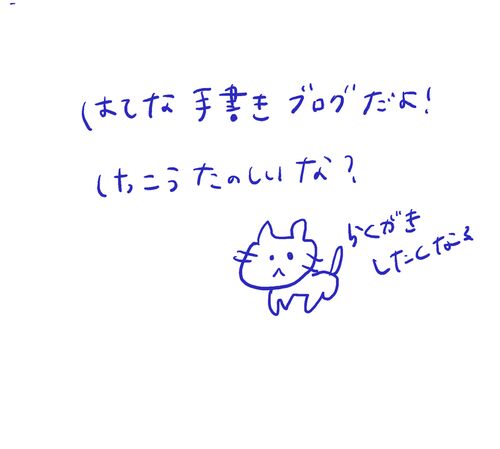 はてな手書きブログだよ!
けっこうたのしいな?
らくがき
したくなる